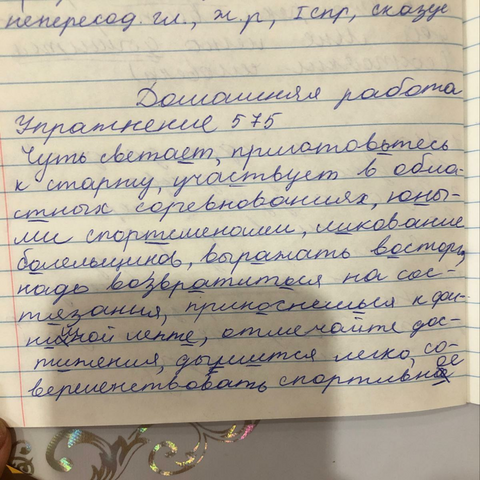 неперсход. гл., ж.р, I спр, сказуе
Домашняя работа
Упражнение 575
Чуть светает, приготовьтесь
к старту, участвует в обла-
стных соревнованиях, юны-
ми спортсменами, ликование
болельщиков, выражать восторг,
надо возвратиться на сос-
тязания, прикоснешься к фи-
нишной ленте, отмечайте дос-
тижения, дышится легко, со-
вершенствовать спортивное